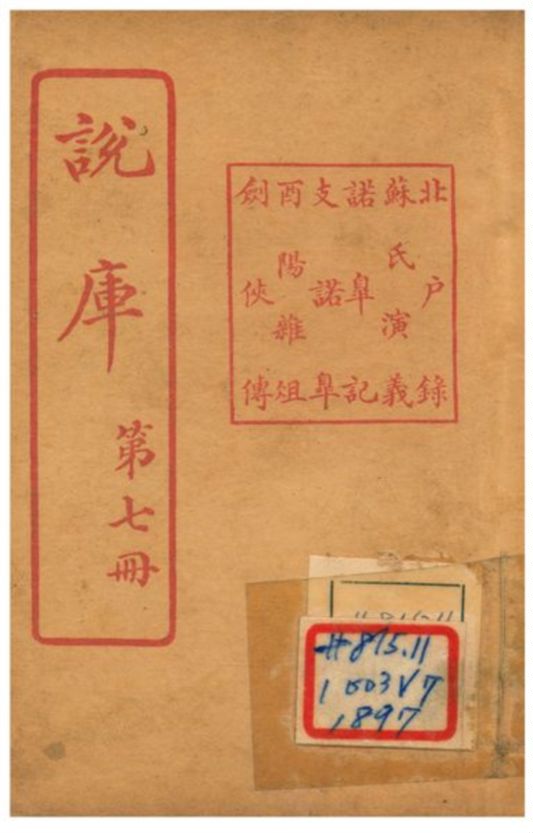 説庫
第七冊
北户錄
蘇氏演義
諾皐記
支諾皐
酉陽雜俎
劍俠傳
#815.11
1003V7
1897